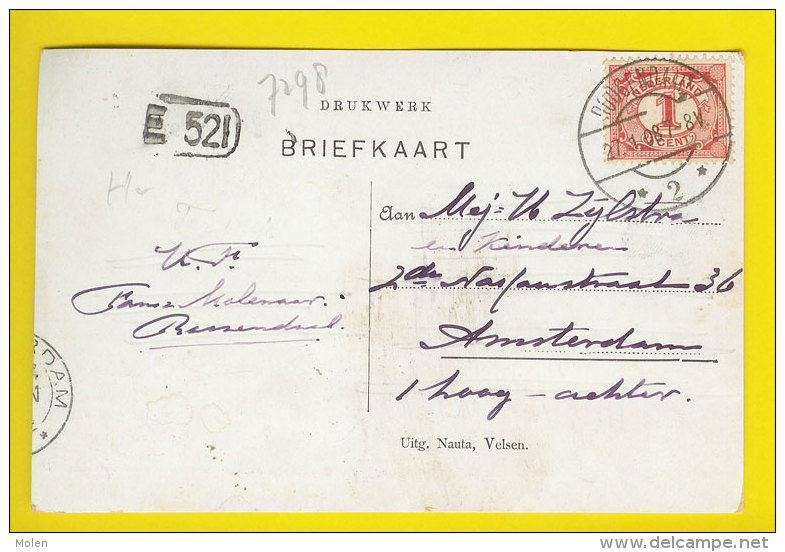 7298
DRUKWERK
E 521
BRIEFKAART
NEDERLAND
1
CENT
27.1.08 7-8V
2
Aan Mej: W Zylstra
en Kinderen
2de Nassaustraat 36
Amsterdam
1 hoog - achter.
Fam: Molenaar.
Roosendaal.
RDAM
Uitg. Nauta, Velsen.
Molen
http://www.delcampe.net